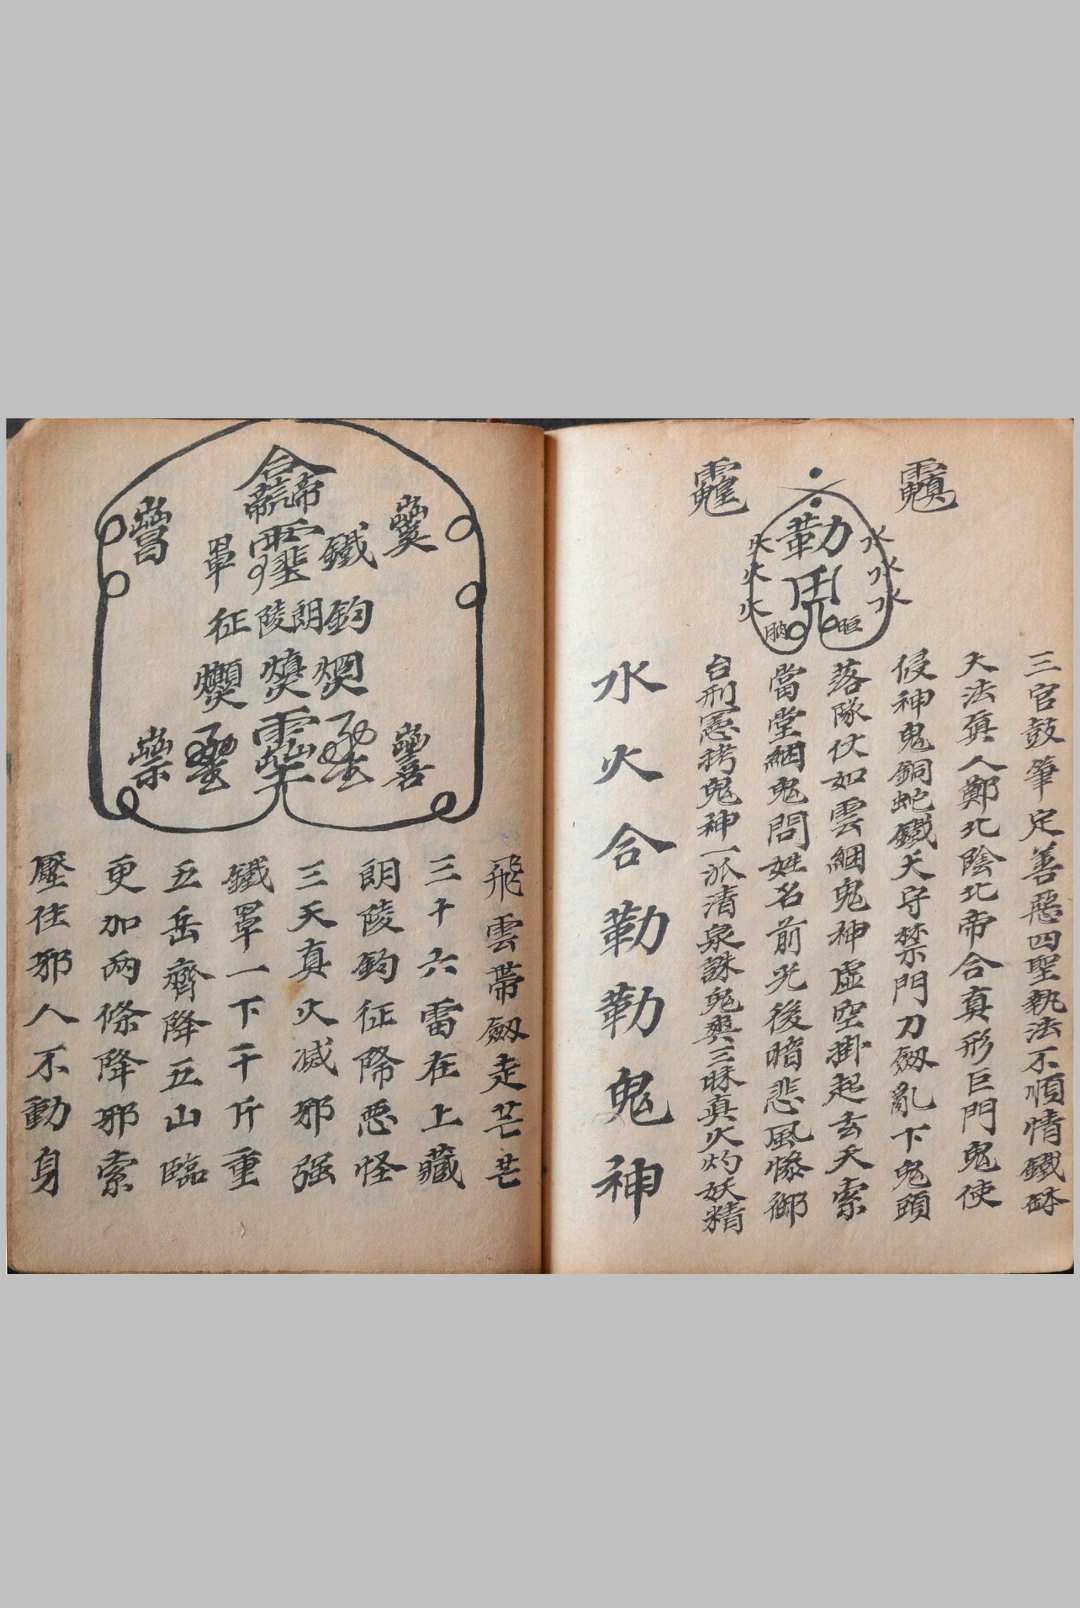 勒
水
水
水
火
火
火
三官鼓筆定善惡四聖執法不順情鐵缽
大法真人鄭北陰北帝合真形巨門鬼使
侵神鬼銅蛇鐵犬守禁門刀劔亂下鬼頭
落隊仗如雲綑鬼神虛空掛起玄天索
當堂綑鬼問姓名前光後暗悲風慘御
台刑憲拷鬼神一派清泉誅鬼與三昧真火灼妖精
水火合勒勒鬼神
鐵鈎
朗陵
罩征
飛雲帶劔走芒芒
三十六雷在上藏
朗陵鈎征除惡怪
三天真火滅邪强
鐵罩一下千斤重
五岳齊降五山臨
更加兩條降邪索
壓住邪人不動身